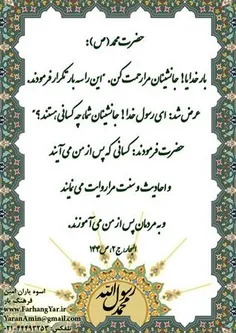 حضرت محمد (ص):
بار خدایا! جانشینان مرا رحمت کن. "این را سه بار تکرار فرمودند.
عرض شد: ای رسول خدا! جانشینان شما، چه کسانی هستند؟"
حضرت فرمودند: کسانی که پس از من می آیند
و احادیث و سنت مرا روایت می نمایند
و به مردمان پس از من می آموزند.
البحار، ج۲، ص۱۴۴
محمد رسول الله
اسوه یاران امین
فرهنگ یار
www.FarhangYar.ir
YaranAmin@gmail.com